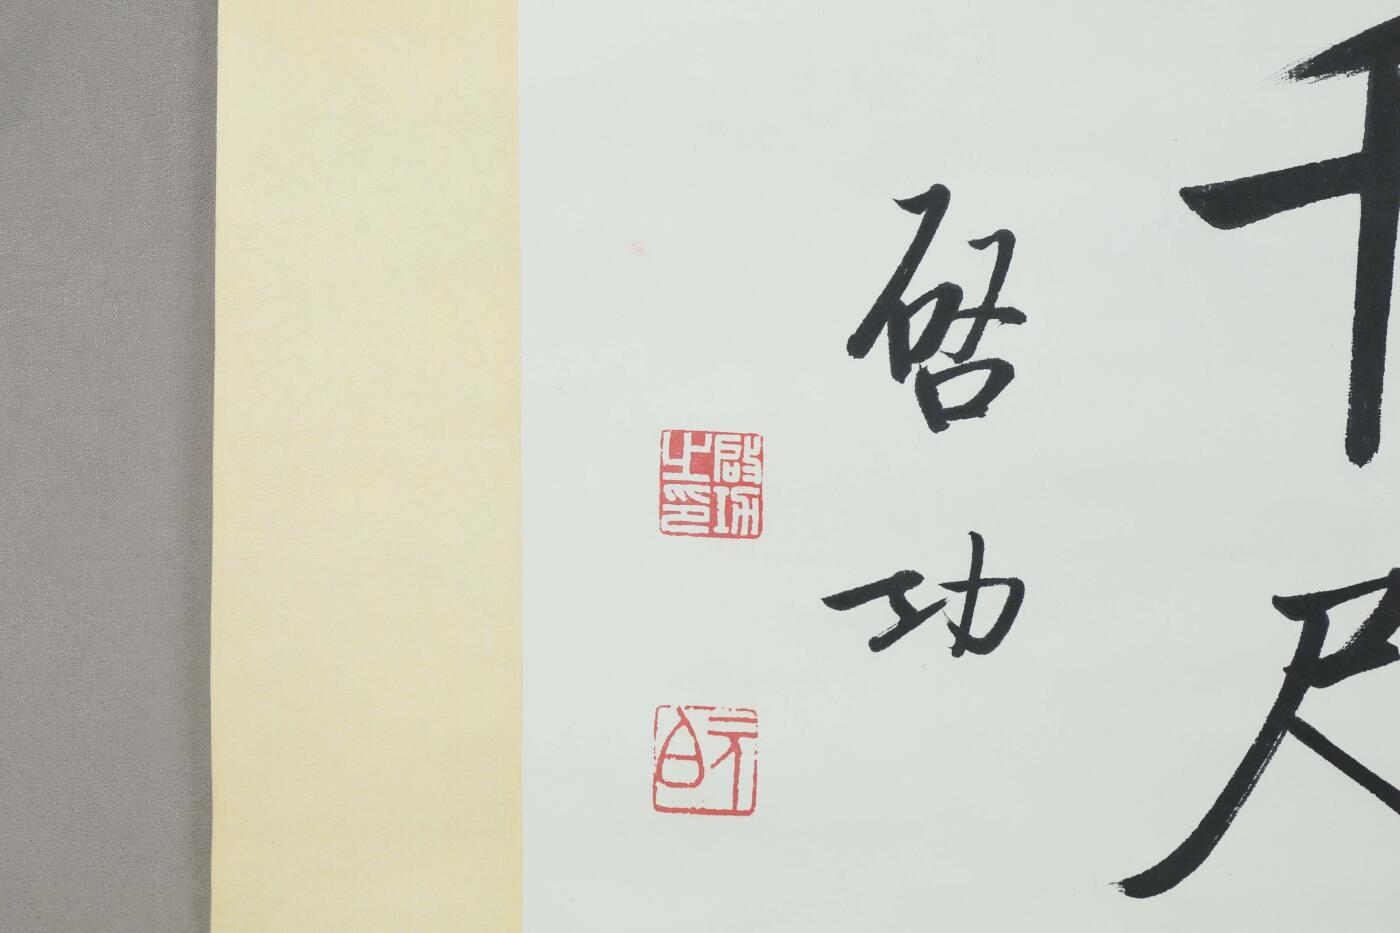 千尺
启功
启功之印
元白